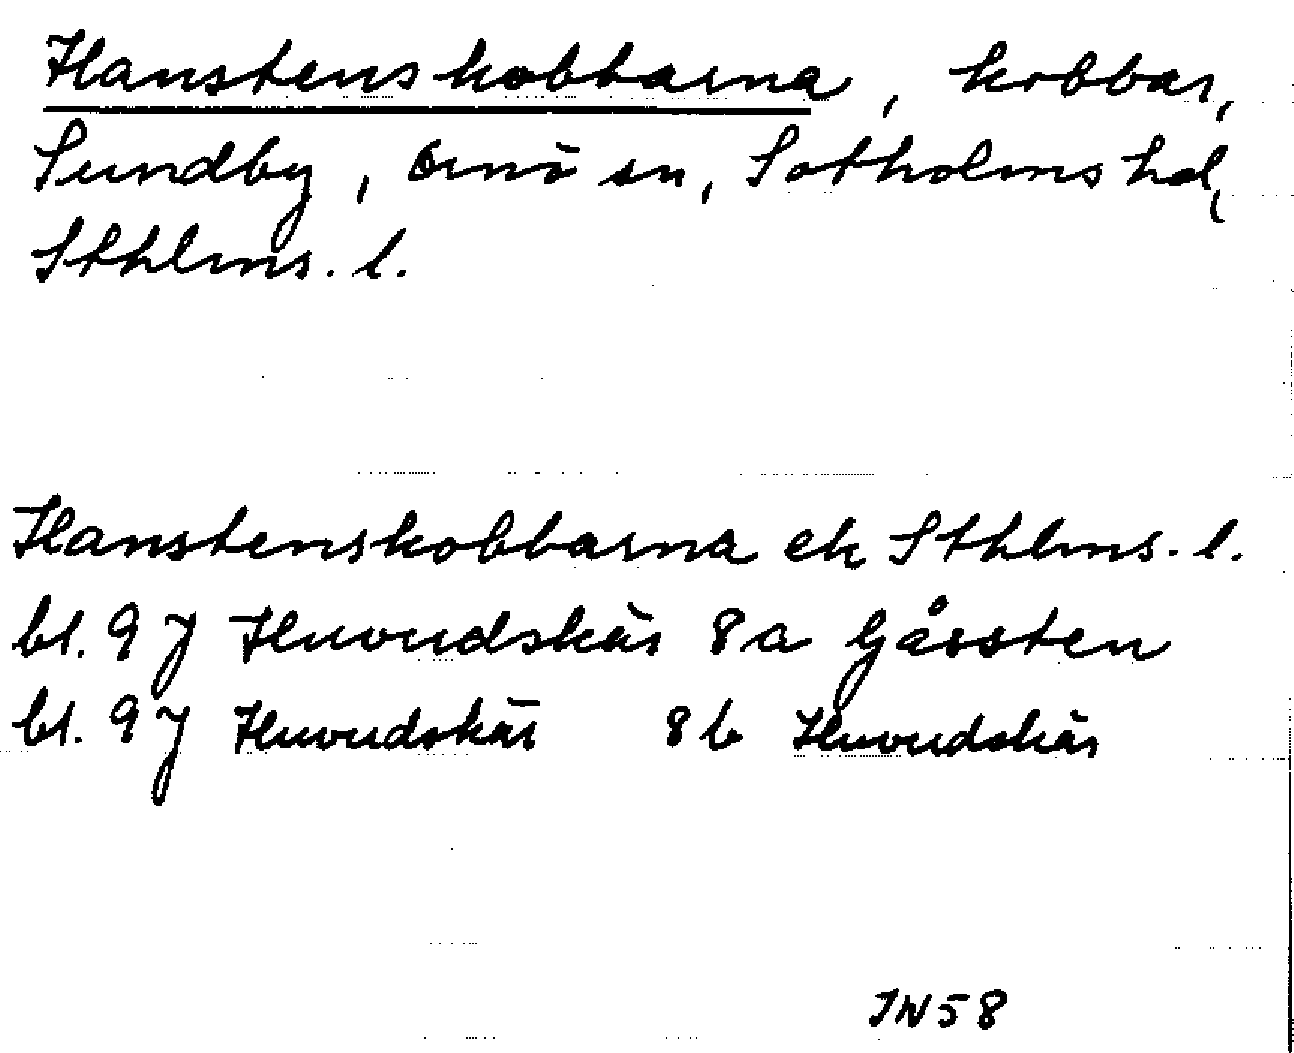 Hanstenskobbarna, kobbar,
Sundby, Ornö sn, Sotholms hd,
Sthlms. l.
Hanstenskobbarna ek Sthlms. l.
bl. 9 J Huvudskär 8a Gåssten
bl. 9 J Huvudskär 8b Huvudskär
JN58